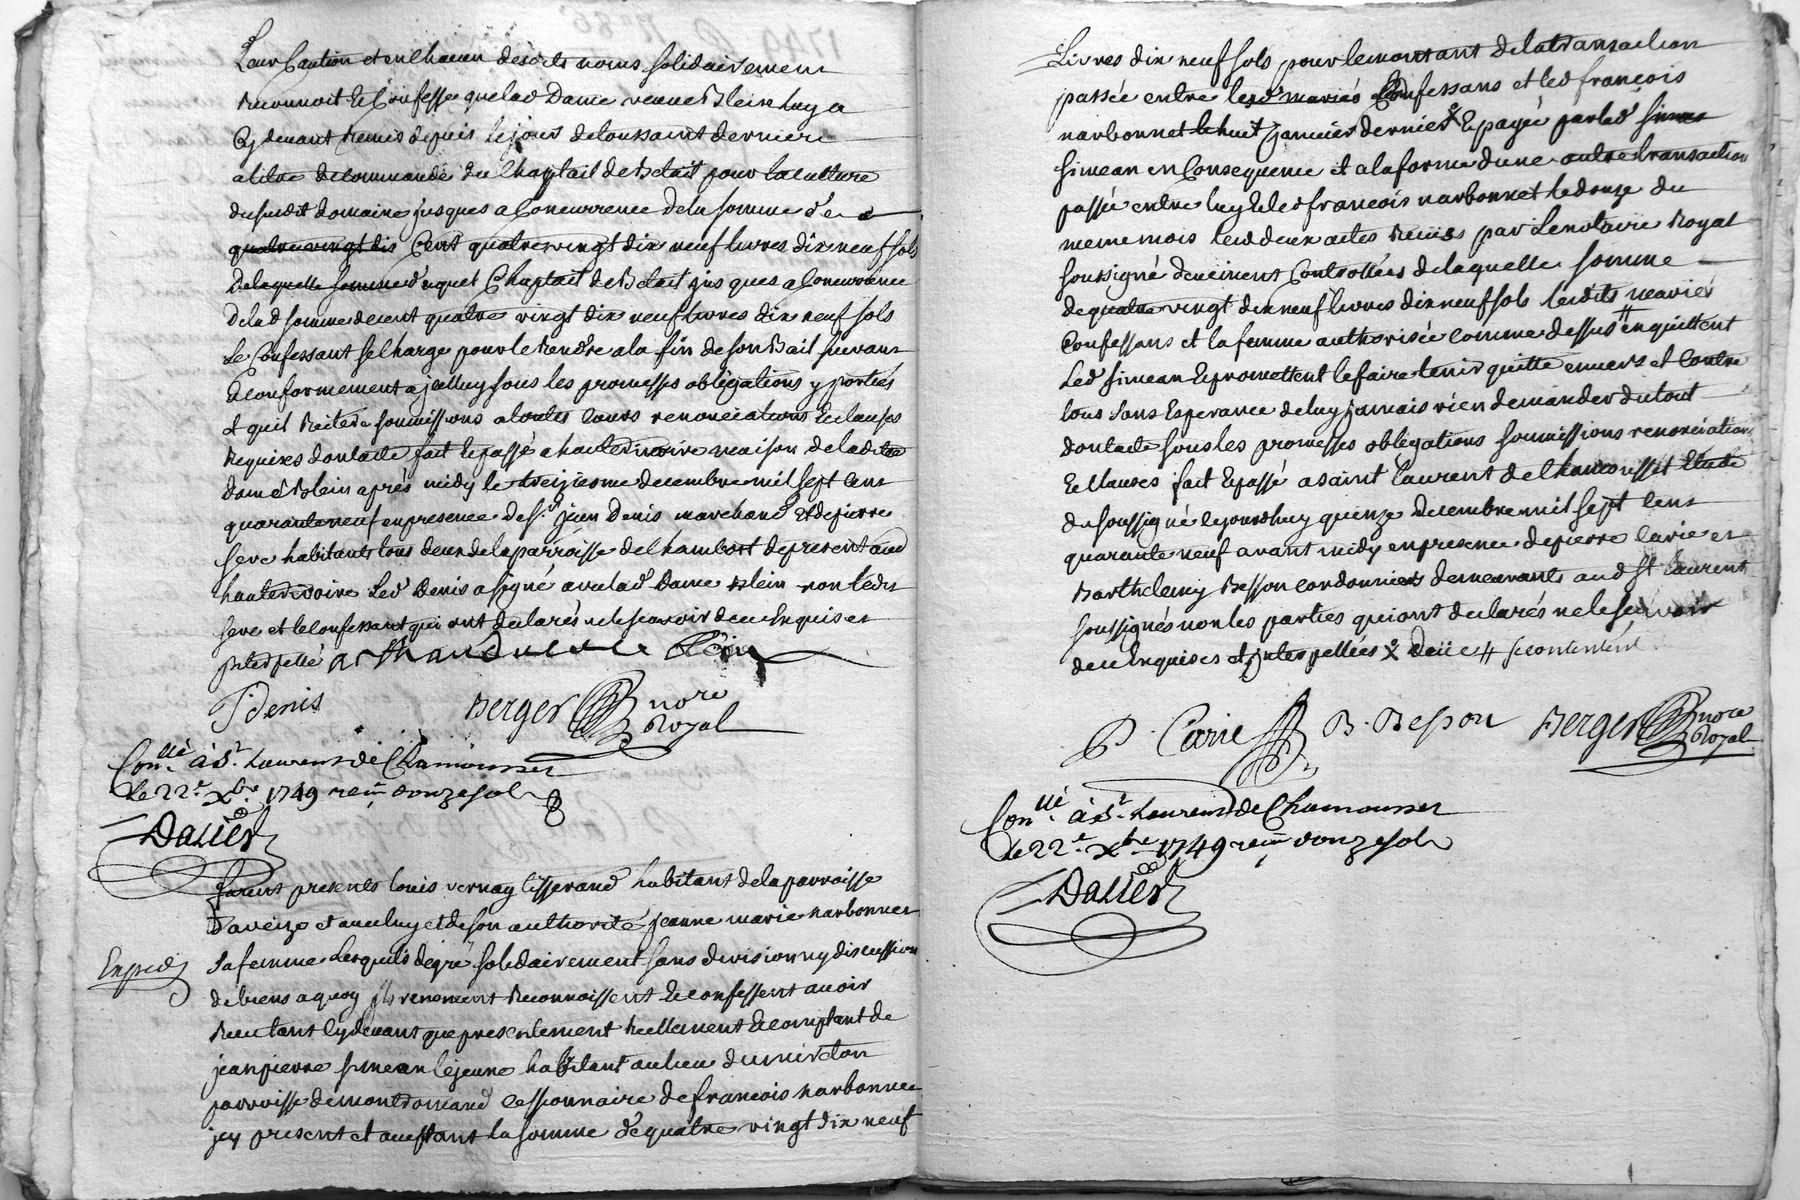 Leur Caution et en Chacun desdits noms solidairement
Reconnoit & Confesse que lad Dame veuve Blein luy a
Cy devant Remis depuis le jour de toussaint derniere
a titre de commande du Chaptail de Betail pour la culture
du susdit domaine jusques a Concurrence de la somme de
quatre vingt dix Cent quatre vingt dix neuf livres dix neuf sols
De laquelle somme duquel Chaptail de Betail jusques a Concurrence
De lad somme de cent quatre vingt dix neuf livres dix neuf sols
Le Confessant se charge pour le Rendre a la fin de son Bail suivant
& conformement a jcelluy sous les promesses obligations y portées
et quil Reitere soumissions a toutes Cours renonciations & clauses
Requises dont acte fait & passé a hauterivoire maison de ladite
dame Blein après midy le treizieme decembre mil sept cent
quarante neuf en presence de sr jean Denis marchand & de pierre
seve habitants tous deux de la parroisse de Chambost de present aud
hauterivoire Led Denis a signé avec lad Dame Blein non ledit
seve et le confessant qui ont declarés ne le scavoir de ce Enquis et
jnterpellé
J Denis Berger nore Royal
Con.llé à St Laurens de Chamousset
Le 22e Xbre 1749 reçu douze sols
Dallier
furent presents louis vernay tisserand habitant de la parroisse
Daveize et avec luy et de son authorité jeanne marie narbonnet
Exped
sa femme Lesquels de gré solidairement sans division ny discussion
de biens a quoy jls renoncent Reconnoissent & confessent avoir
Receu tant Cy devant que presentement Reellement & comptant de
jean pierre simean le jeune habitant au lieu du mirdton
parroisse de montromand cessionnaire de francois narbonnet
jcy present et acceptant la somme de quatre vingt dix neuf
Livres dix neuf sols pour le montant de la transaction
passée entre lesd mariés Confessans et led françois
narbonnet le huit janvier dernier x & payée par led
simean en Consequence et a la forme dune autre transaction
passée entre luy & led francois narbonnet le douze du
meme mois lesd deux actes Reçus par Le notaire Royal
soussigné deuement Controllées de laquelle somme
de quatre vingt dix neuf livres dix neuf sols lesdits mariés
Confessans et la femme authorisée comme dessus # en quittent
Led simean & promettent le faire tenir quitte envers et Contre
tous sans Esperance de luy jamais rien demander du tout
dont acte sous les promesses obligations soumissions renonciations
& clauses fait & passé a saint Laurent de Chamousset Etude
du soussigné le jourdhuy quinze decembre mil sept cent
quarante neuf avant midy en presence de pierre carie et
Barthelemy Besson cordonniers demeurants aud St Laurent
soussignés non les parties qui ont declarés ne le scavoir
de ce Enquises et jnterpellées x # se contentent
P. Carie B. Besson Berger nore Royal
Con.llé à St Laurens de Chamousset
Le 22e Xbre 1749 reçu douze sols
Dallier